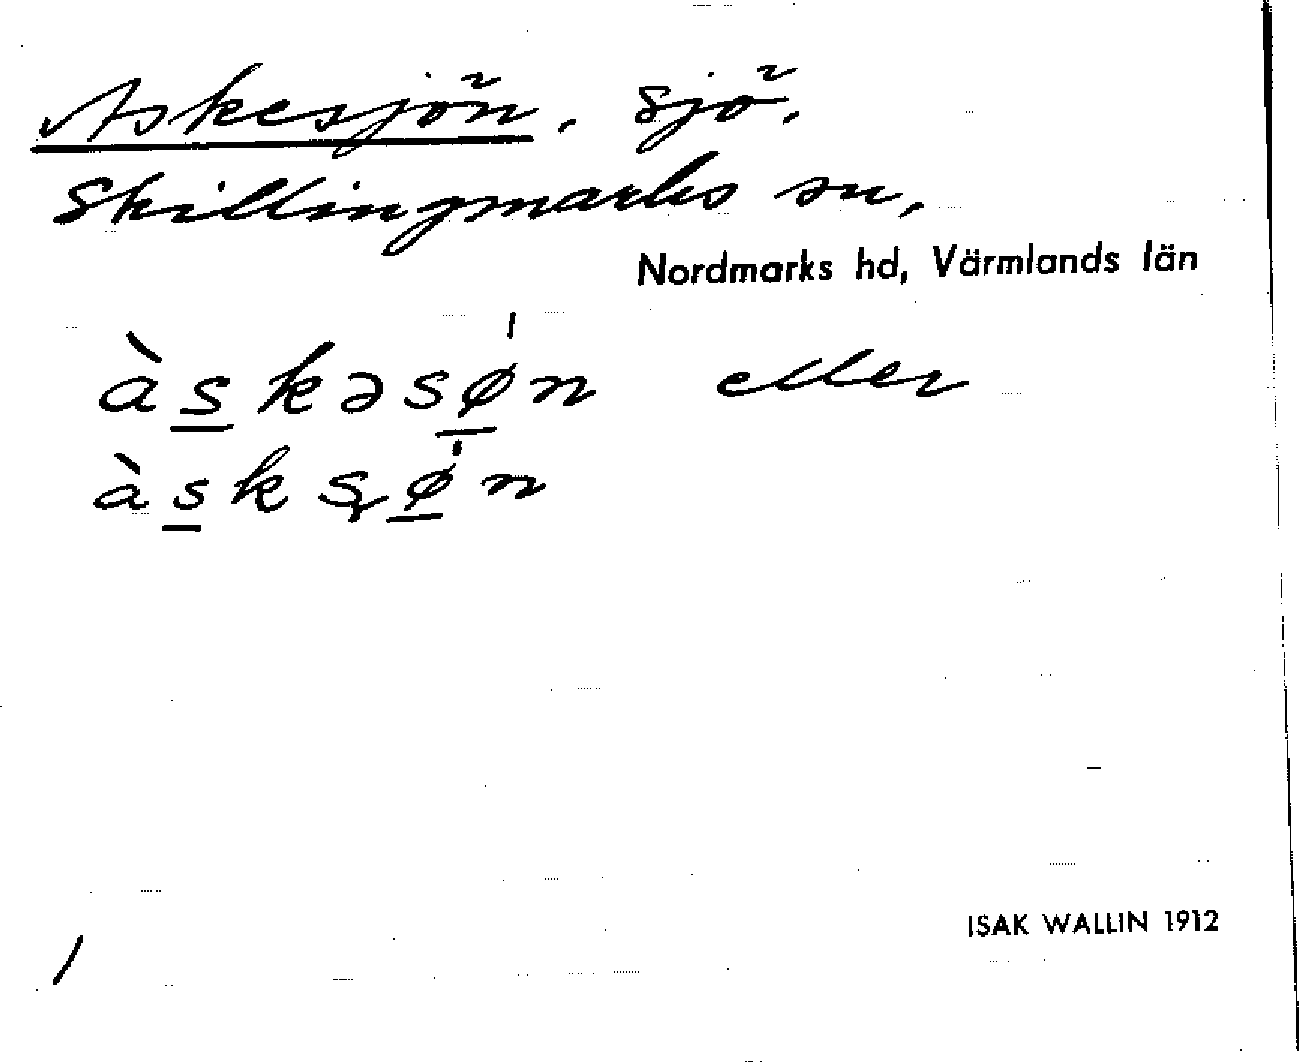 Askesjön, sjö,
Skillingmarks sn,
Nordmarks hd, Värmlands län
àskəsǿn eller
àsksǿn
ISAK WALLIN 1912
/